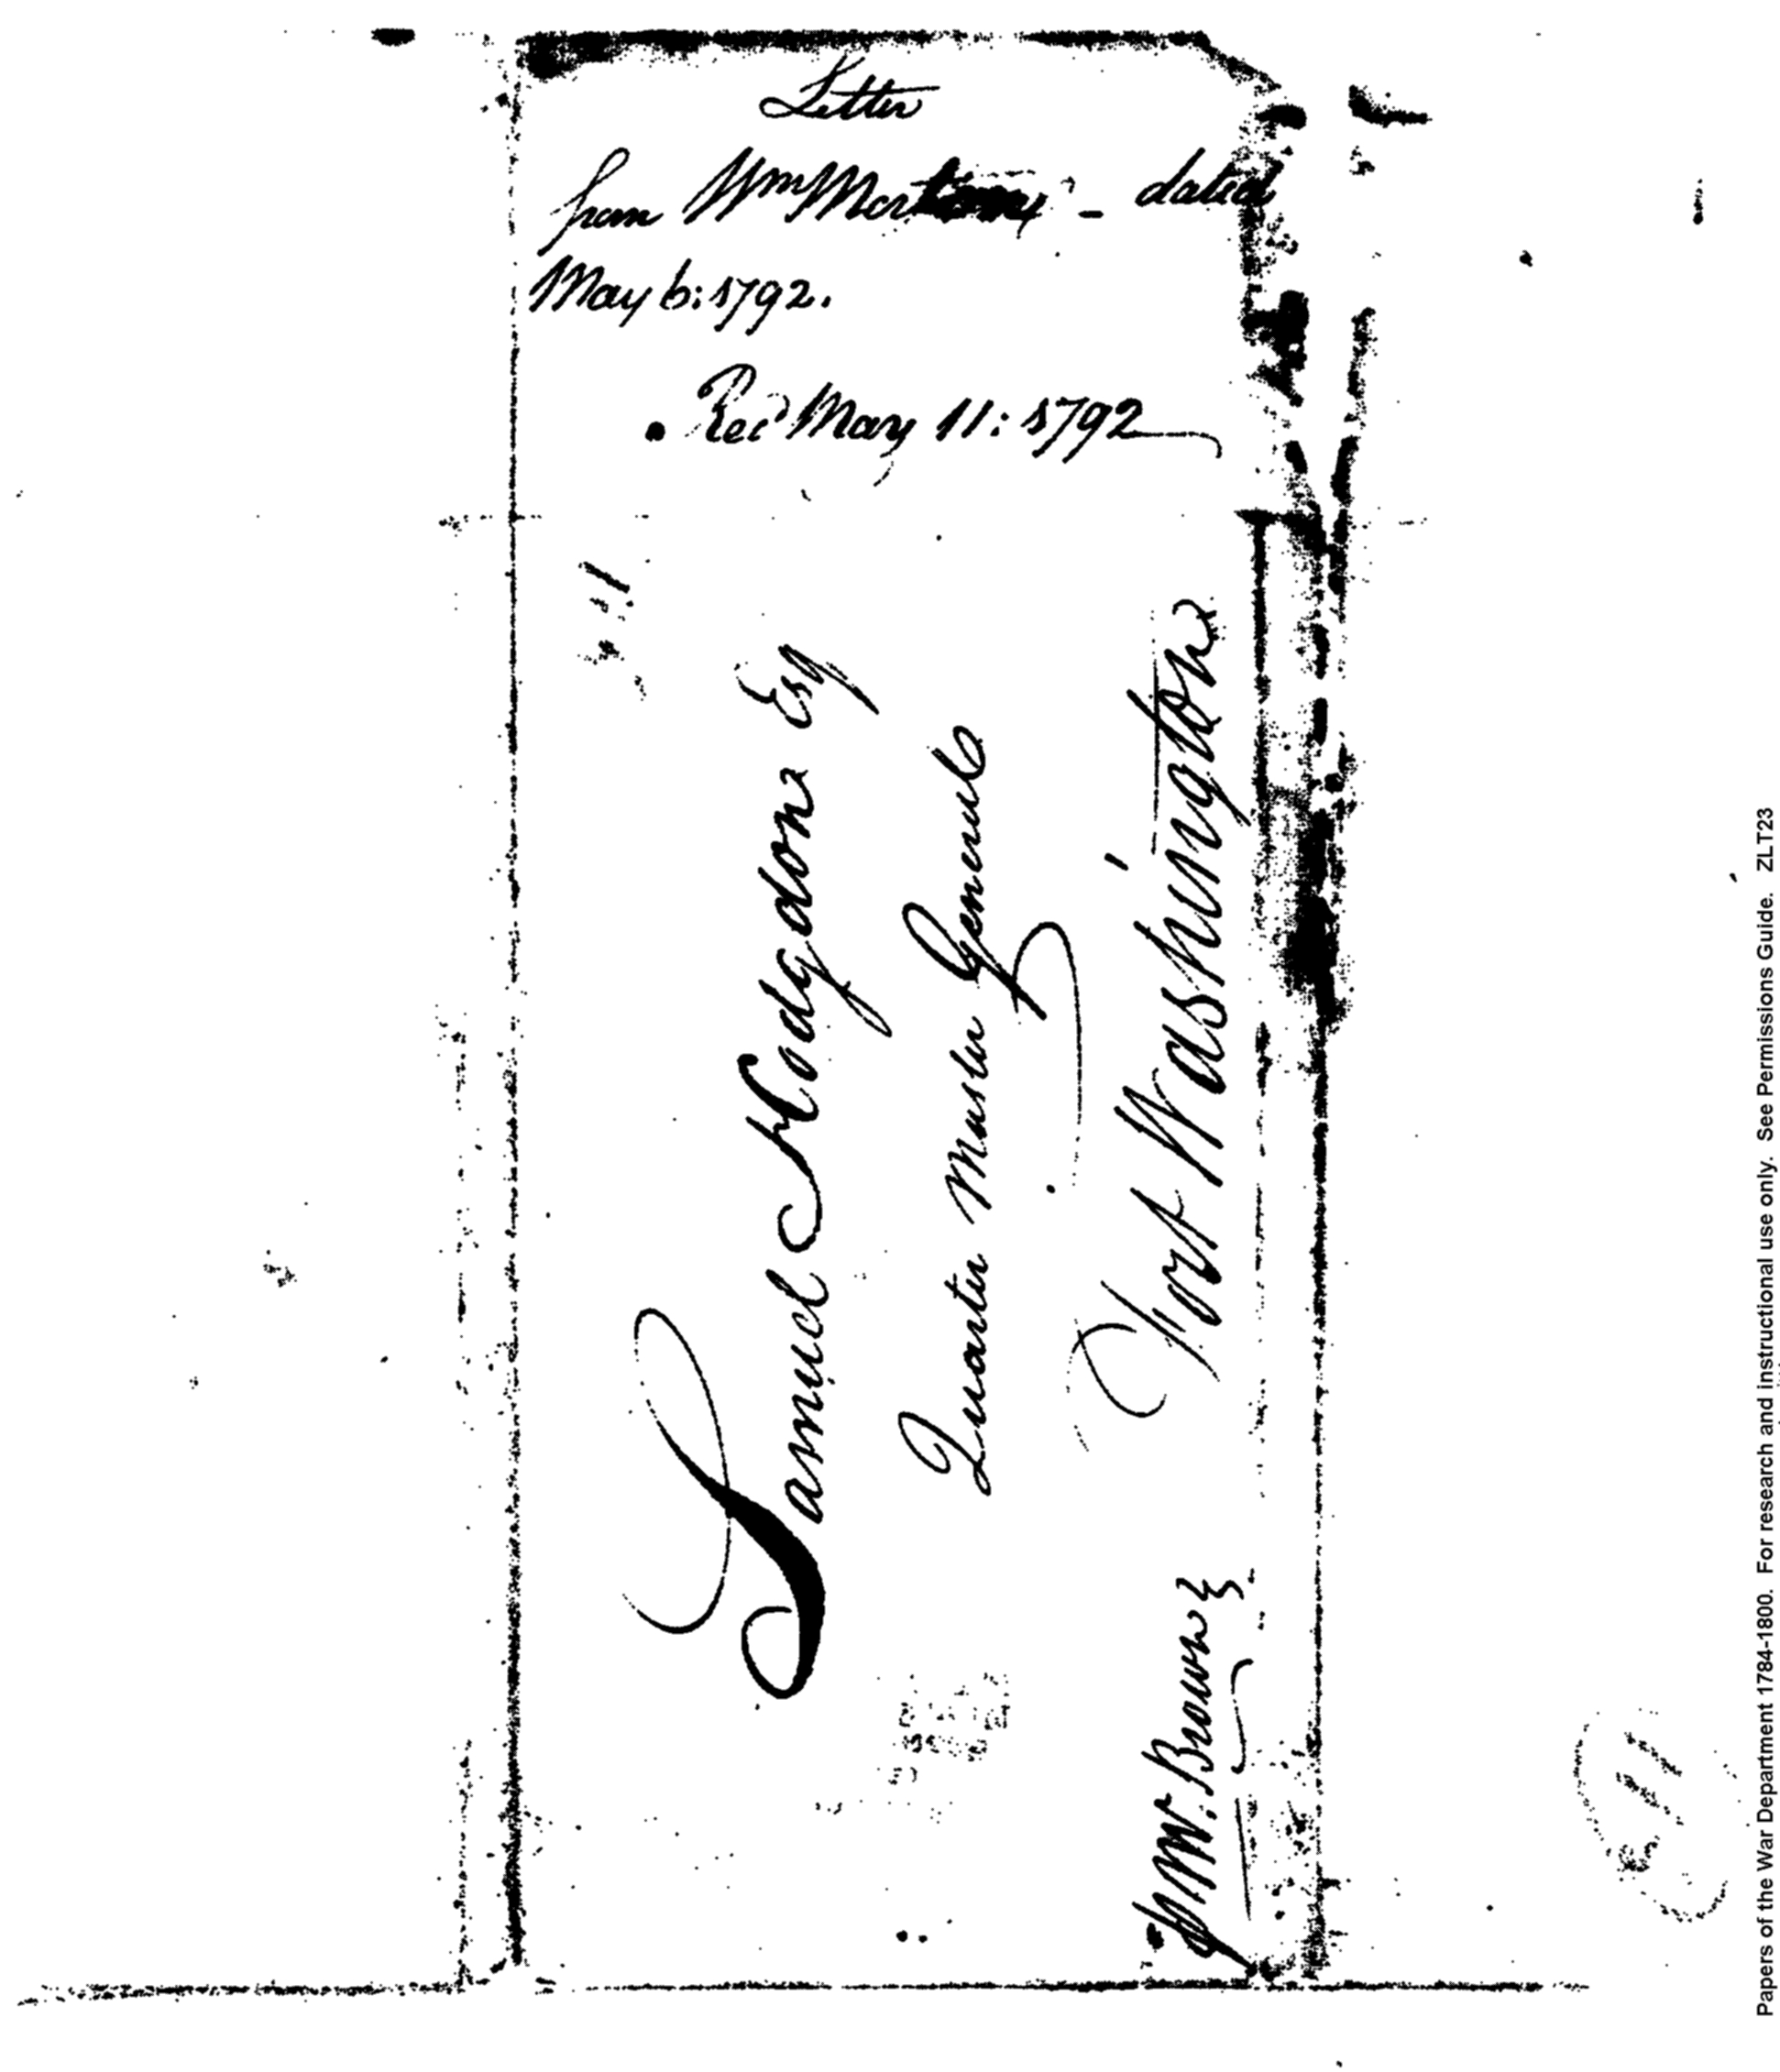 Letter
from Wm Morton - dated
May 6: 1792.
Rec'd May 11: 1792
Samuel Hodgdon Esq
Quarter Master General
Fort Washington
Mr. Brown
Papers of the War Department 1784-1800. For research and instructional use only. See Permissions Guide. ZLT23